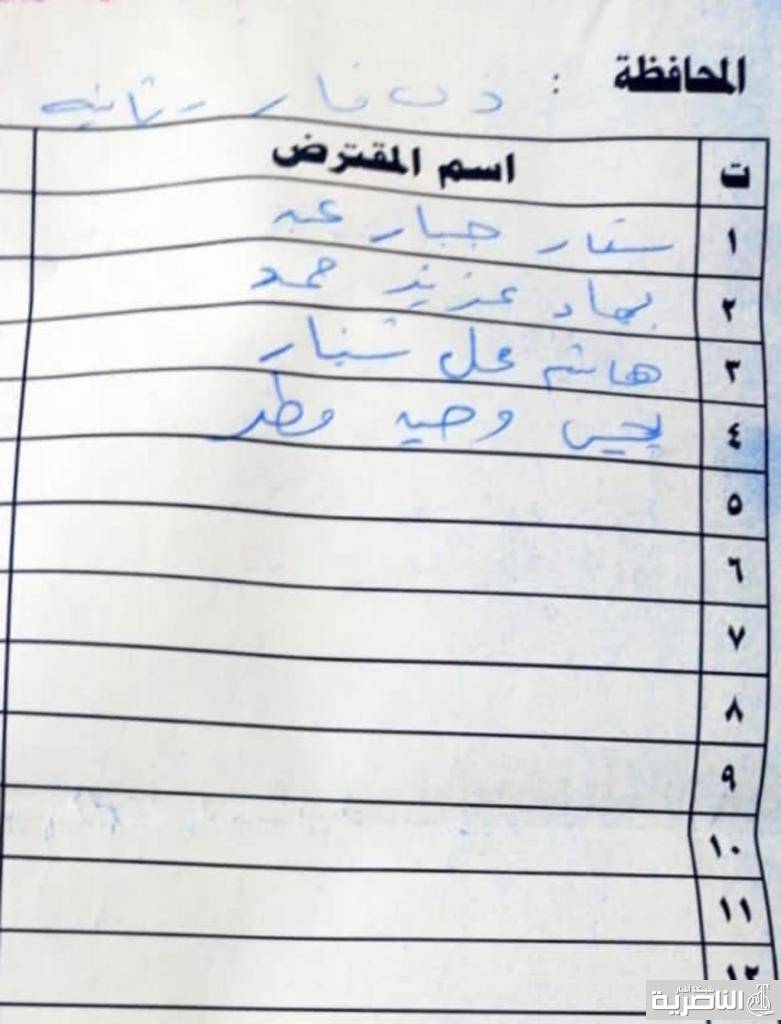 المحافظة : ذي قار - ثانيه
ت اسم المقترض
١ ستار جبار عبد
٢ جهاد عزيز حمد
٣ هاشم علي شنيار
٤ يحيى وحيد مطر
٥
٦
٧
٨
٩
١٠
١١
١٢
شبكة أخبار
الناصرية